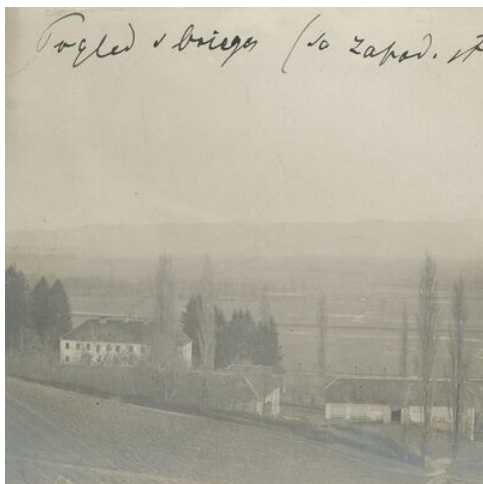 Pogled s briega (sa zapad. st